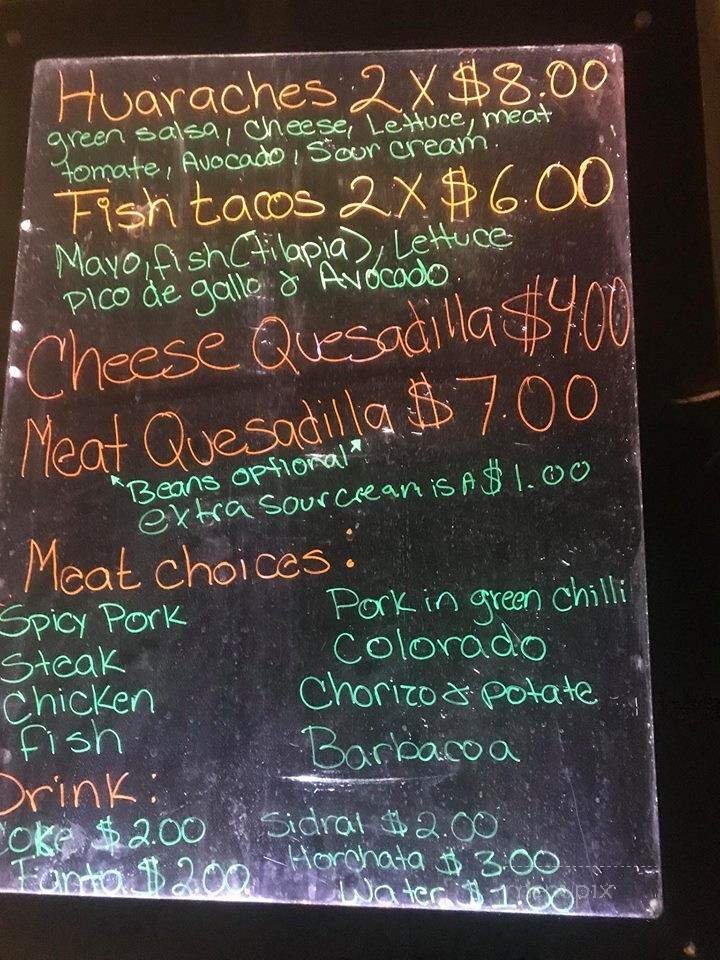 Huaraches 2 X $8.00
green salsa, cheese, Lettuce, meat
tomate, Avocado, Sour cream.
Fish tacos 2 X $6.00
Mayo, fish (tilapia), Lettuce
Pico de gallo & Avocado.
Cheese Quesadilla $4.00
Meat Quesadilla $7.00
"Beans optional"
extra sour cream is A $1.00
Meat choices:
Spicy Pork Pork in green chilli
Steak Colorado
Chicken Chorizo & potate
fish Barbacoa
Drink:
Coke $2.00 Sidral $2.00
Fanta $2.00 Horchata $3.00
Water $1.00